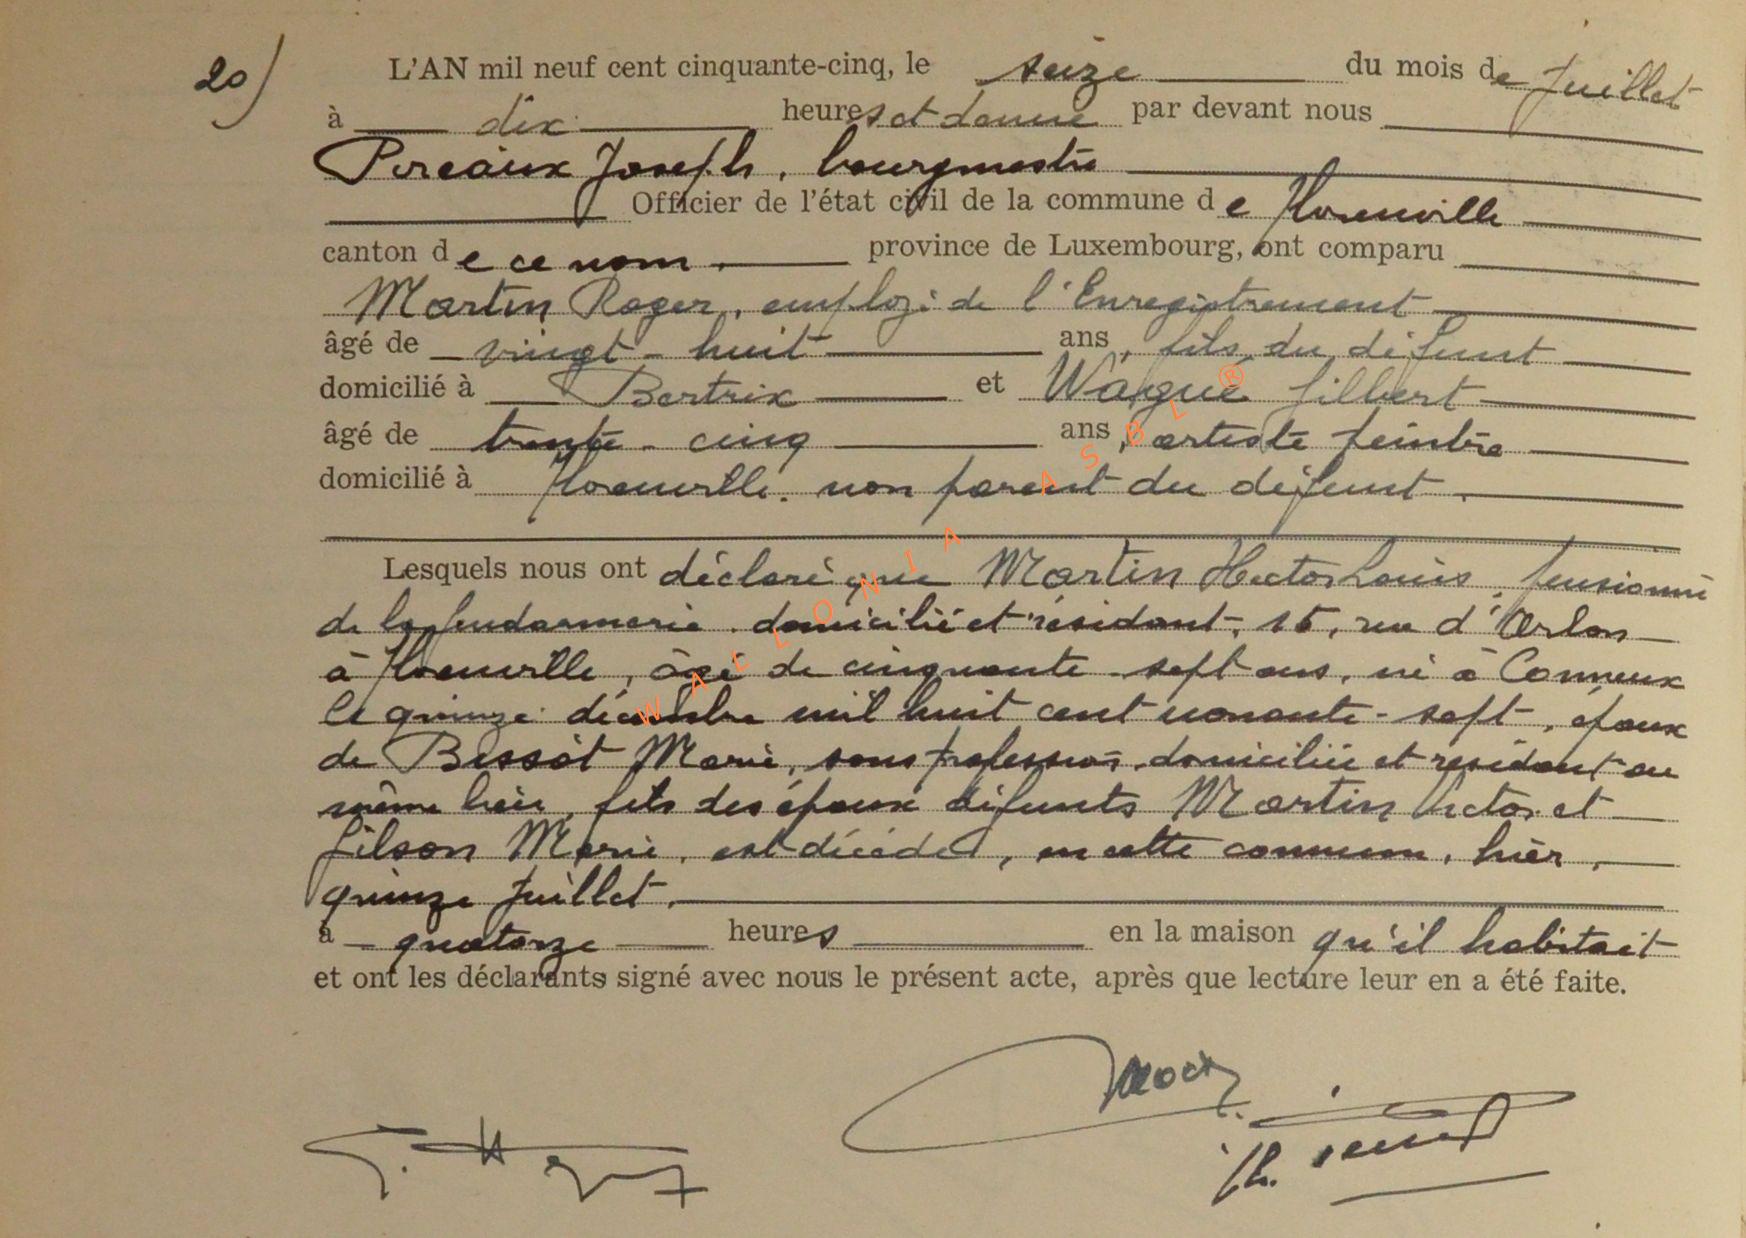 20)
L'AN mil neuf cent cinquante-cinq, le seize du mois de Juillet
à dix heures et demie par devant nous
Pireaux Joseph, bourgmestre
Officier de l'état civil de la commune de Florenville
canton de ce nom. province de Luxembourg, ont comparu
Martin Roger, employé de l'Enregistrement
âgé de vingt-huit ans, fils du défunt
domicilié à Bertrix et Waigué Gilbert
âgé de trente-cinq ans, artiste peintre
domicilié à Florenville. non parent du défunt.
Lesquels nous ont déclaré que Martin Hector Louis, pensionné
de la gendarmerie. domicilié et résidant, 15, rue d'Arlon
à Florenville, âgé de cinquante-sept ans, né à Conneux
le quinze décembre mil huit cent nonante-sept, époux
de Bissot Marie, sans profession, domiciliée et résidant au
même lieu, fils des époux défunts Martin Victor et
Gilson Marie, est décédé, en cette commune, hier,
quinze Juillet.
à quatorze heures en la maison qu'il habitait
et ont les déclarants signé avec nous le présent acte, après que lecture leur en a été faite.
WALLONIA ASBL ®